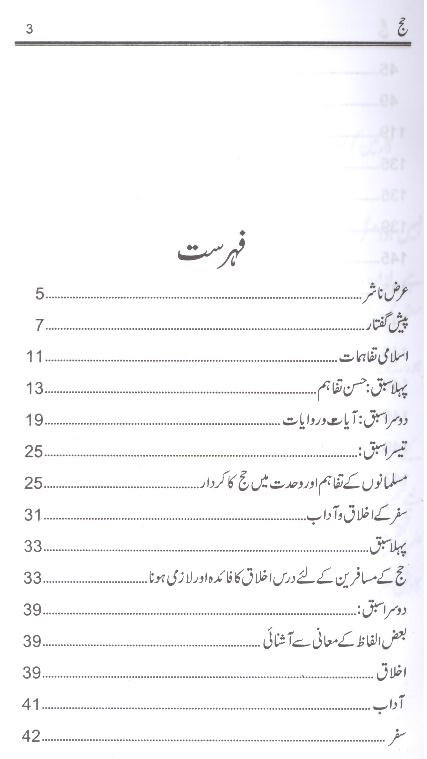 حج 3
فہرست
عرض ناشر 5
پیش گفتار 7
اسلامی تفاہمات 11
پہلا سبق: حسن تفاہم 13
دوسرا سبق: آیات و روایات 19
تیسرا سبق: 25
مسلمانوں کے تفاہم اور وحدت میں حج کا کردار 25
سفر کے اخلاق و آداب 31
پہلا سبق 33
حج کے مسافرین کے لئے درس اخلاق کا فائدہ اور لازمی ہونا 33
دوسرا سبق: 39
بعض الفاظ کے معانی سے آشنائی 39
اخلاق 39
آداب 41
سفر 42